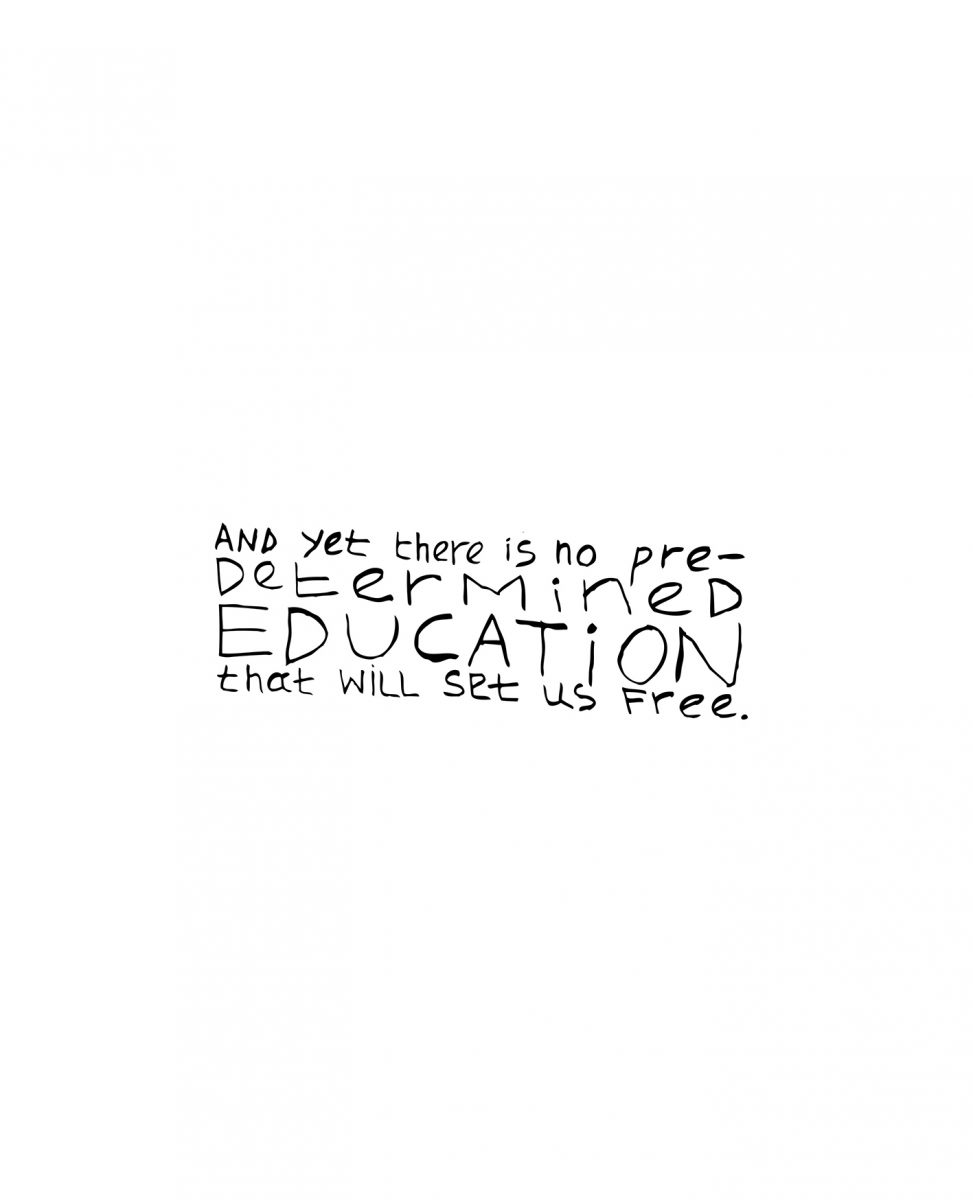 AND yet there is no pre-
DeterMineD
EDUCATiON
that WiLL set us Free.